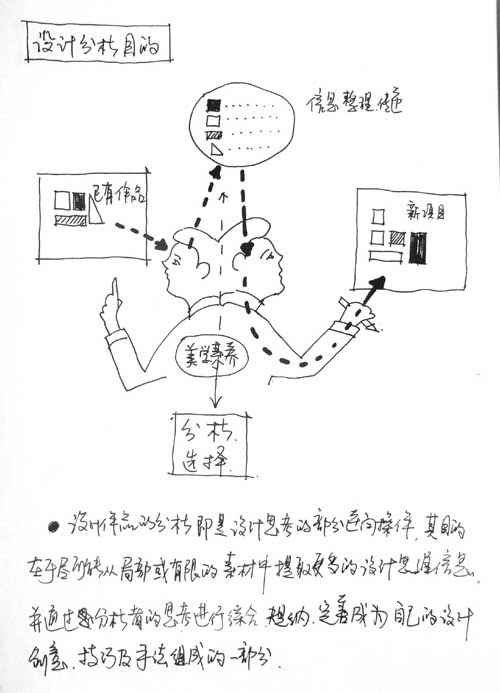 设计分析目的
信息整理、传达
已有作品
新项目
美学素养
分析.
选择.
● 设计作品的分析即是设计思考的部分逆向操作，其目的
在于尽可能从局部或有限的素材中提取更多的设计思维信息，
并通过分析者的思考进行综合、归纳、完善成为自己的设计
创意、技巧及手法组成的一部分.